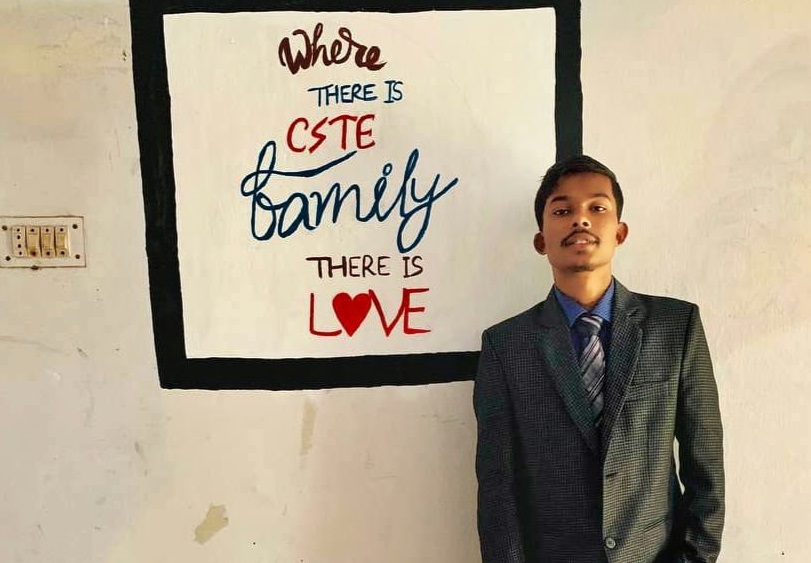 Where
THERE IS
CSTE
family
THERE IS
LOVE